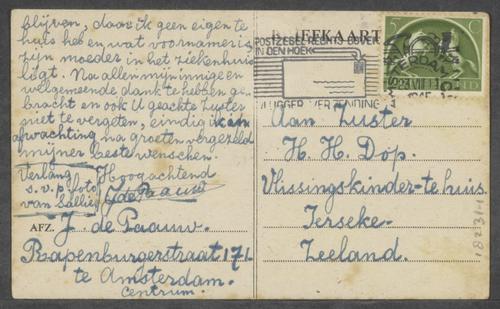 blijven, daar ik geen eigen te
huis heb en wat voornamer is
zijn moeder in het ziekenhuis
ligt. Na allen mijn innige en
welgemeende dank te hebben ge-
bracht en ook U geachte Zuster
niet te vergeten, eindig ik in
afwachting na groeten vergezeld
mijner beste wenschen.
Verlang
s.v.p. foto
van Sallie
Hoogachtend
J de Paauw
AFZ. J. de Paauw.
Rapenburgerstraat 171
te Amsterdam.
Centrum.
BRIEFKAART
POSTZEGEL RECHTS BOVEN
IN DEN HOEK
VLUGGER VERZENDING
5
NEDERLAND
Aan Zuster
H. H. Dop.
Vlissingskinder-te huis
Ierseke-
Zeeland.